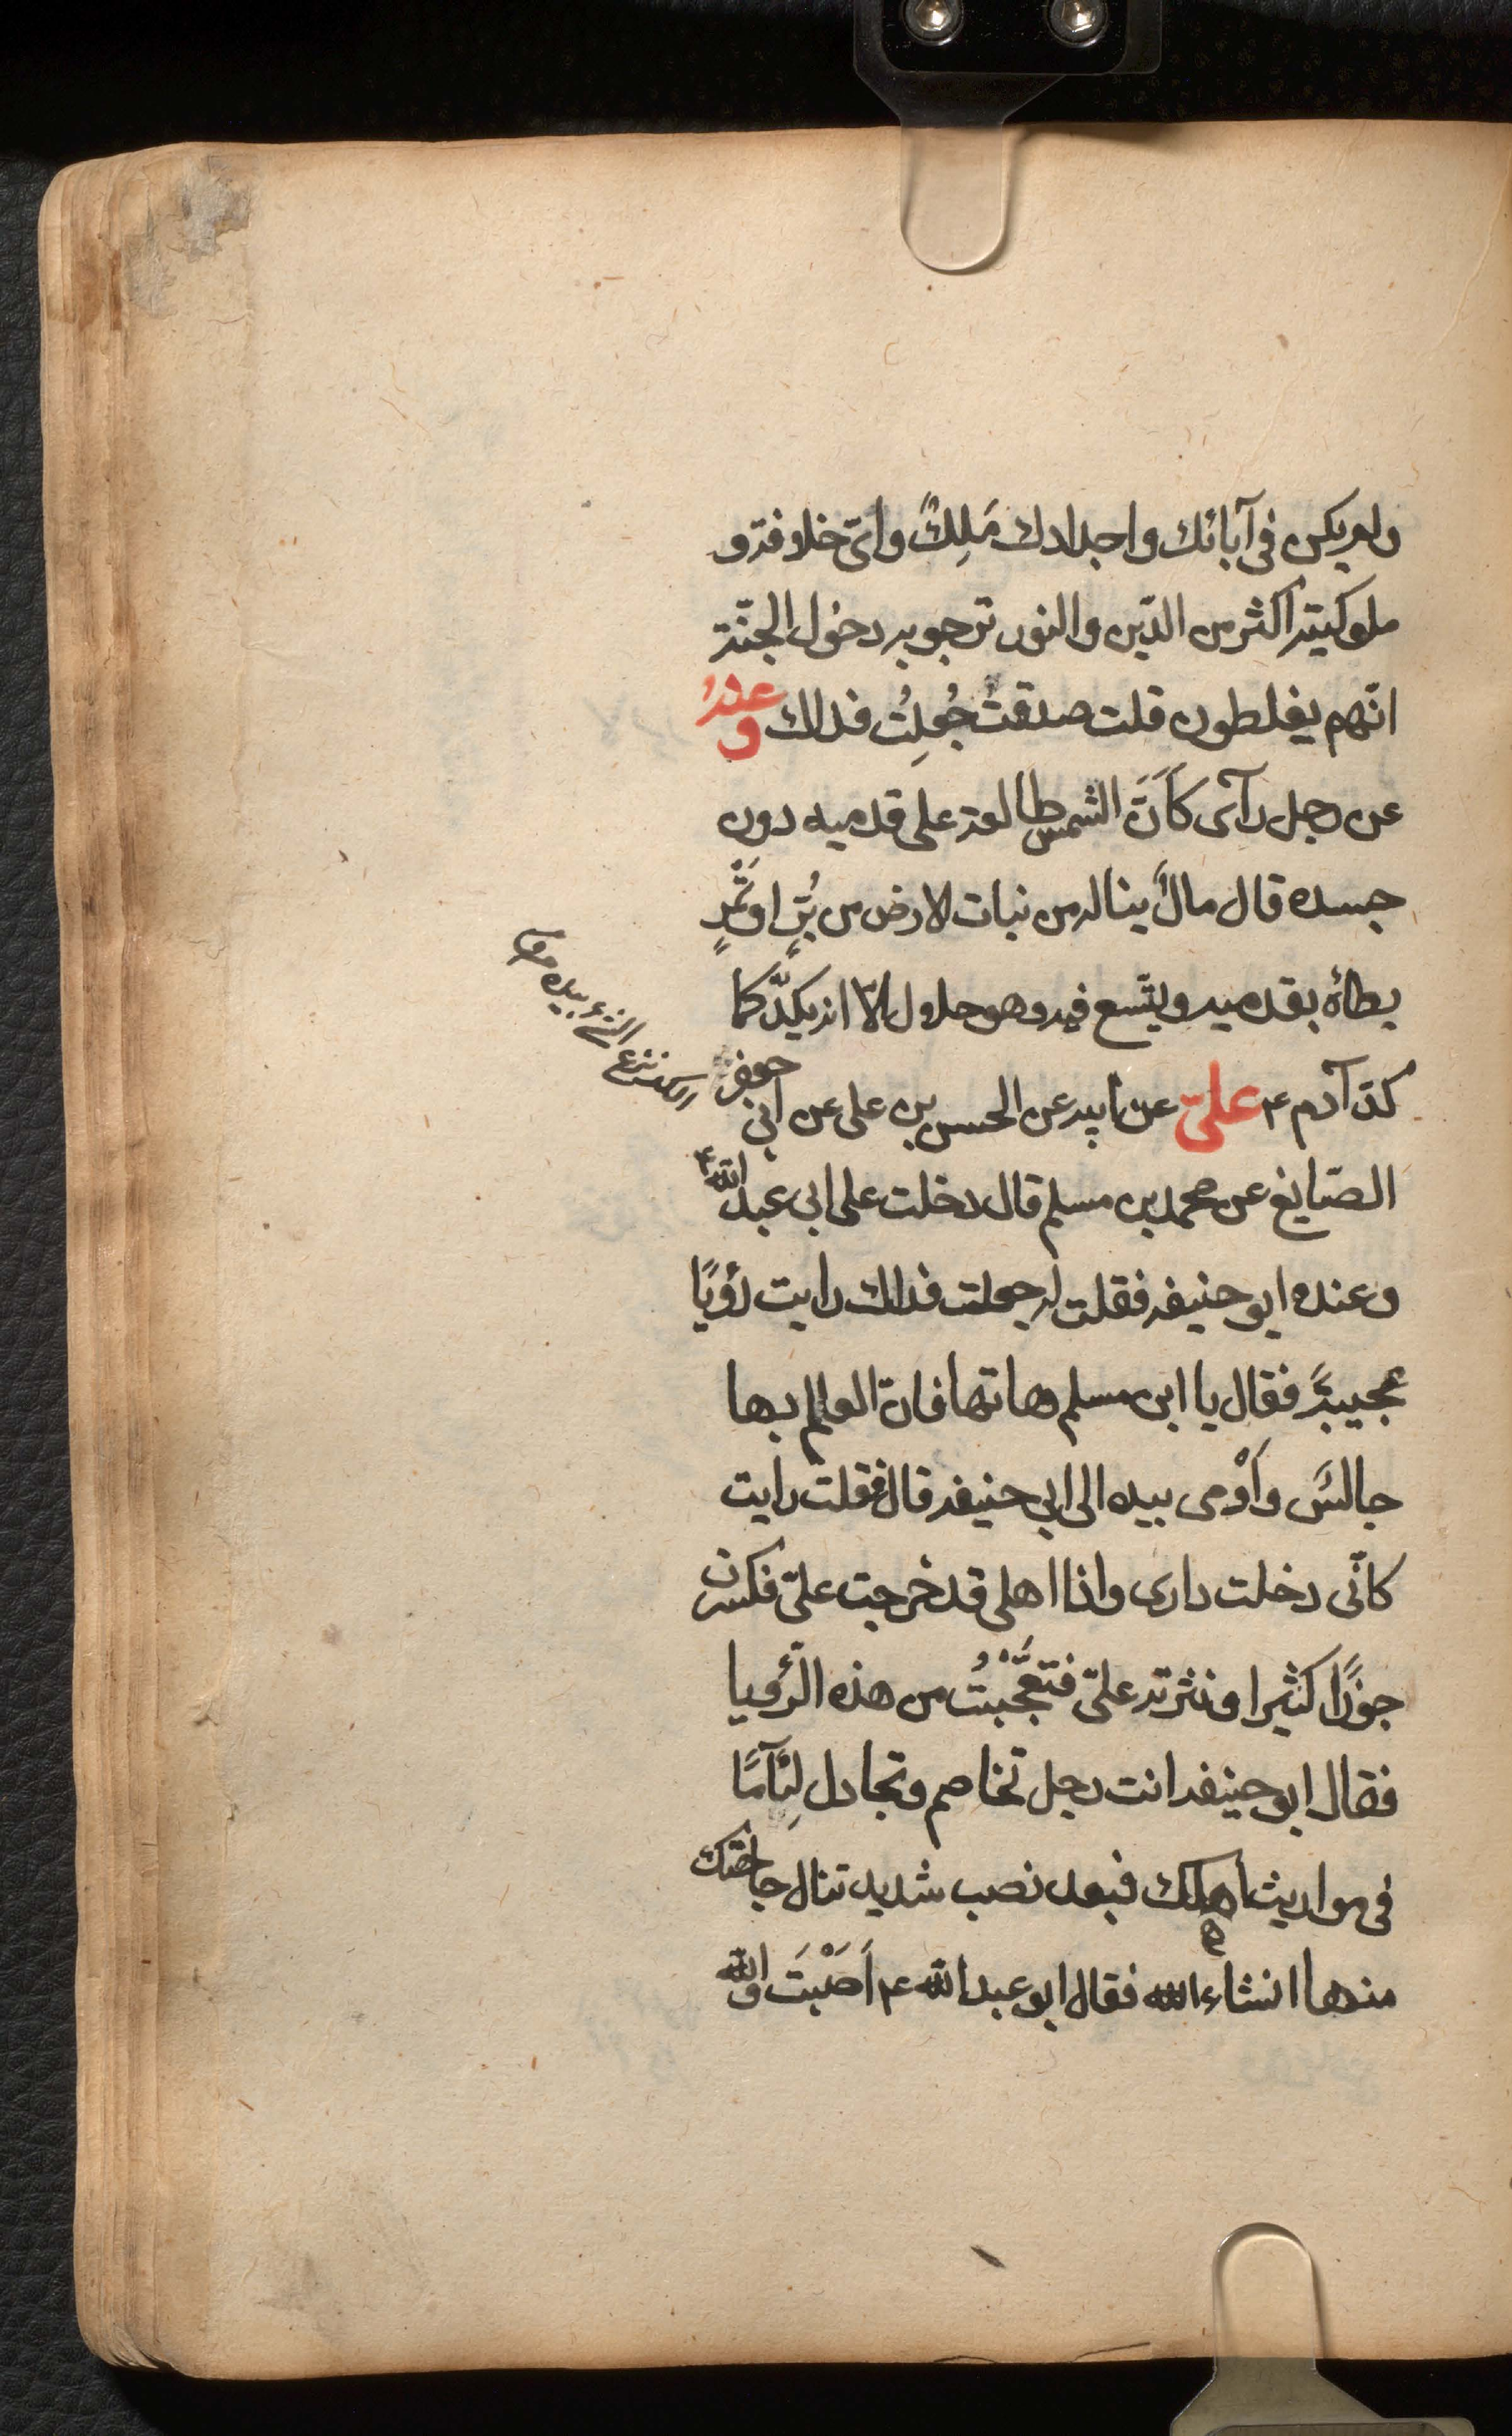 ولم يكن في آبائك واجدادك مَلِكٌ وايّ خلافة و
ملوكية اكثر من الدّين والنور ترجو به دخول الجنّة
انّهم يغلطون قلت صدقتَ جُعِلتُ فداك وعنهُ
عن رجل رآى كَاَنَّ الشمس طالعة على قدميه دون
جسده قال مالٌ يناله من نبات الارض من بُرٍّ او تَمْرٍ
يطاه بقدميه ويتّسع فيه وهو حلال الّا انه يكدّ كما
كدّ آدم ع عليّ عن ابيه عن الحسن بن على عن ابى جعفر
الصّايغ عن محمد بن مسلم قال دخلت على ابى عبد الله ع
وعنده ابو حنيفة فقلت له جعلت فداك رايت رؤيًا
عجيبةً فقال يا ابن مسلم هاتها فانّ العالم بها
جالسٌ وَاَوْمى بيده الى ابى حنيفة قال فقلت رايت
كانّى دخلت دارى واذا اهلى قد خرجت علىّ فكسرت
جوزًا كثيرا ونثرته علىّ فتعجَّبْتُ من هذه الرّؤيا
فقال ابو حنيفة انت رجل تخاصم وتجادل لِئَآمًا
فى مواريث اهلك فبعد نصب شديد تنال حاجتك
منها انشاء الله فقال ابو عبد الله ع اَصَبْتَ والله